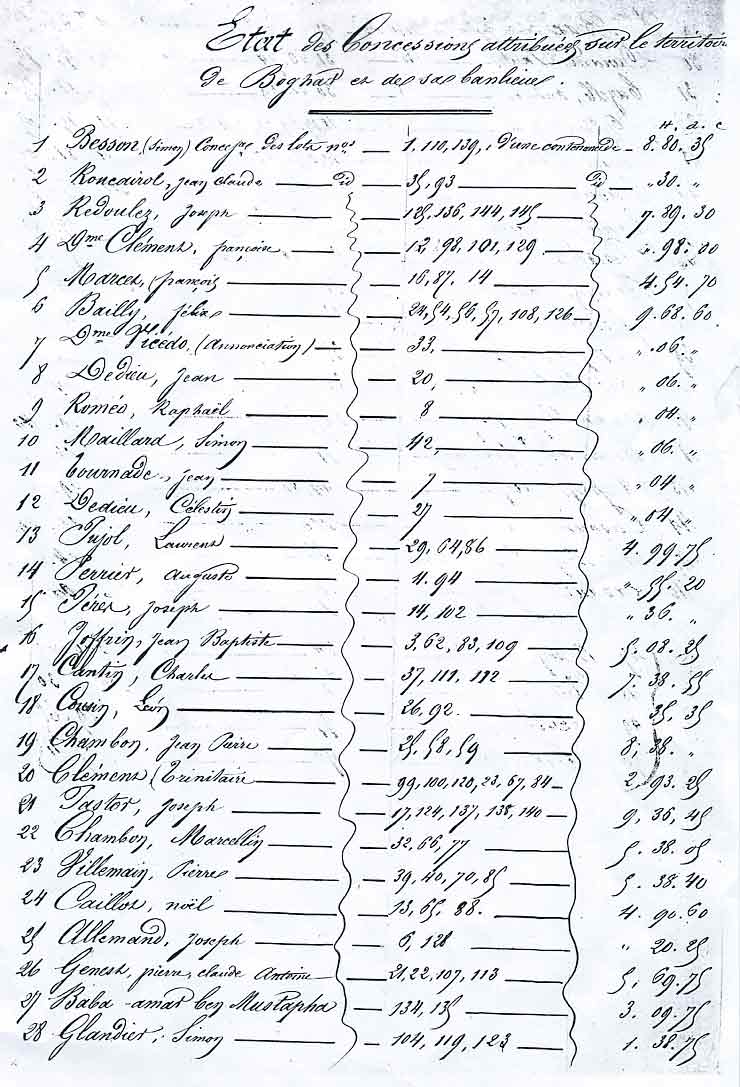 Etat des Concessions attribuées sur le territoire
de Boghar et de sa banlieue.
H. a. c
1 Besson, (Simon) Concess.re des lots nos 1, 110, 139, d'une contenance de 8. 80. 35
2 Roncairol, jean Claude id 35, 93 id „ 30. „
3 Redoulez, Joseph 125, 136, 144, 145 7. 89. 30
4 Dme Clément, françoise 12, 98, 101, 129 „ 98. 00
5 Marcet, françois 16, 87. 14 4. 54. 70
6 Bailly, félix 24, 54, 56, 57, 108, 126 9. 68. 60
7 Dme Picédo, (Annonciation) 33, „ 06. „
8 Dedieu, Jean 20, „ 06. „
9 Roméo, Raphaël 8 „ 04. „
10 Maillard, Simon 42, „ 06. „
11 Tournade, jean 7 „ 04 „
12 Dedieu, Célestin 27 „ 04 „
13 Pujol, Laurent 29, 64, 86 4. 99. 75
14 Perrier, auguste 11. 94 „ 55. 20
15 Pérez, Joseph 14, 102 „ 36. „
16 Joffrin, Jean Baptiste 3, 62, 83, 109 5. 08. 25
17 Cantin, Charles 37, 111. 112 7. 38. 55
18 Cousin, Léon 26, 92. „ 35, 35
19 Chambon, Jean Pierre 25, 58, 59 8, 38. „
20 Clément (Trinitaire 99, 100, 120, 23, 67, 84 2, 93. 25
21 Pastor, Joseph 17, 124, 137, 138, 140 9, 36, 45
22 Chambon, Marcellin 32, 66, 77 5. 38. 05
23 Villemain, Pierre 39, 40, 70, 85 5. 38. 40
24 Caillot, noël 13, 65, 88. 4. 90. 60
25 Allemand, Joseph 6, 128 „ 20. 25
26 Genest, pierre, claude Antoine 21, 22, 107, 113 5, 69. 75
27 Baba-amar ben Mustapha 134, 135 3. 09. 75
28 Glandier, Simon 104, 119, 123 1. 38. 75